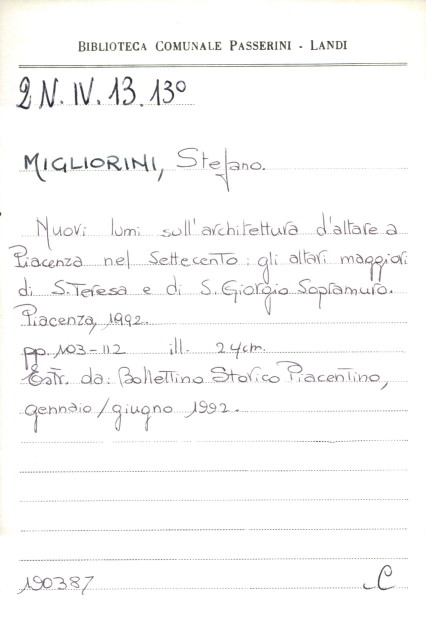 BIBLIOTECA COMUNALE PASSERINI - LANDI
2 N. IV. 13. 13°
MIGLIORINI, Stefano.
Nuovi lumi sull'architettura d'altare a
Piacenza nel Settecento: gli altari maggiori
di S. Teresa e di S. Giorgio Sopramuro.
Piacenza, 1992.
pp. 103-112 ill. 24cm.
Estr. da: Bollettino Storico Piacentino,
gennaio/giugno 1992.
190387 C